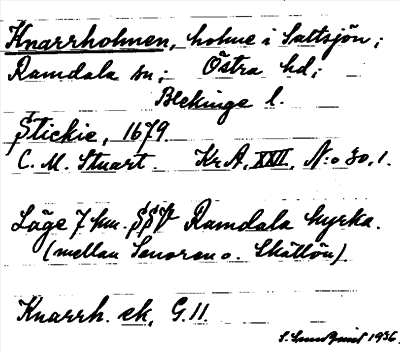 Knarrholmen, holme i Saltsjön;
Ramdala sn; Östra hd;
Blekinge l.
Stickie, 1679.
C. M. Stuart. Kr.A, XXII, N:o 30, 1.
Läge 7 km. SSV Ramdala kyrka.
(mellan Senoren o. Skällön).
Knarrh. ek, G.11.
1936.